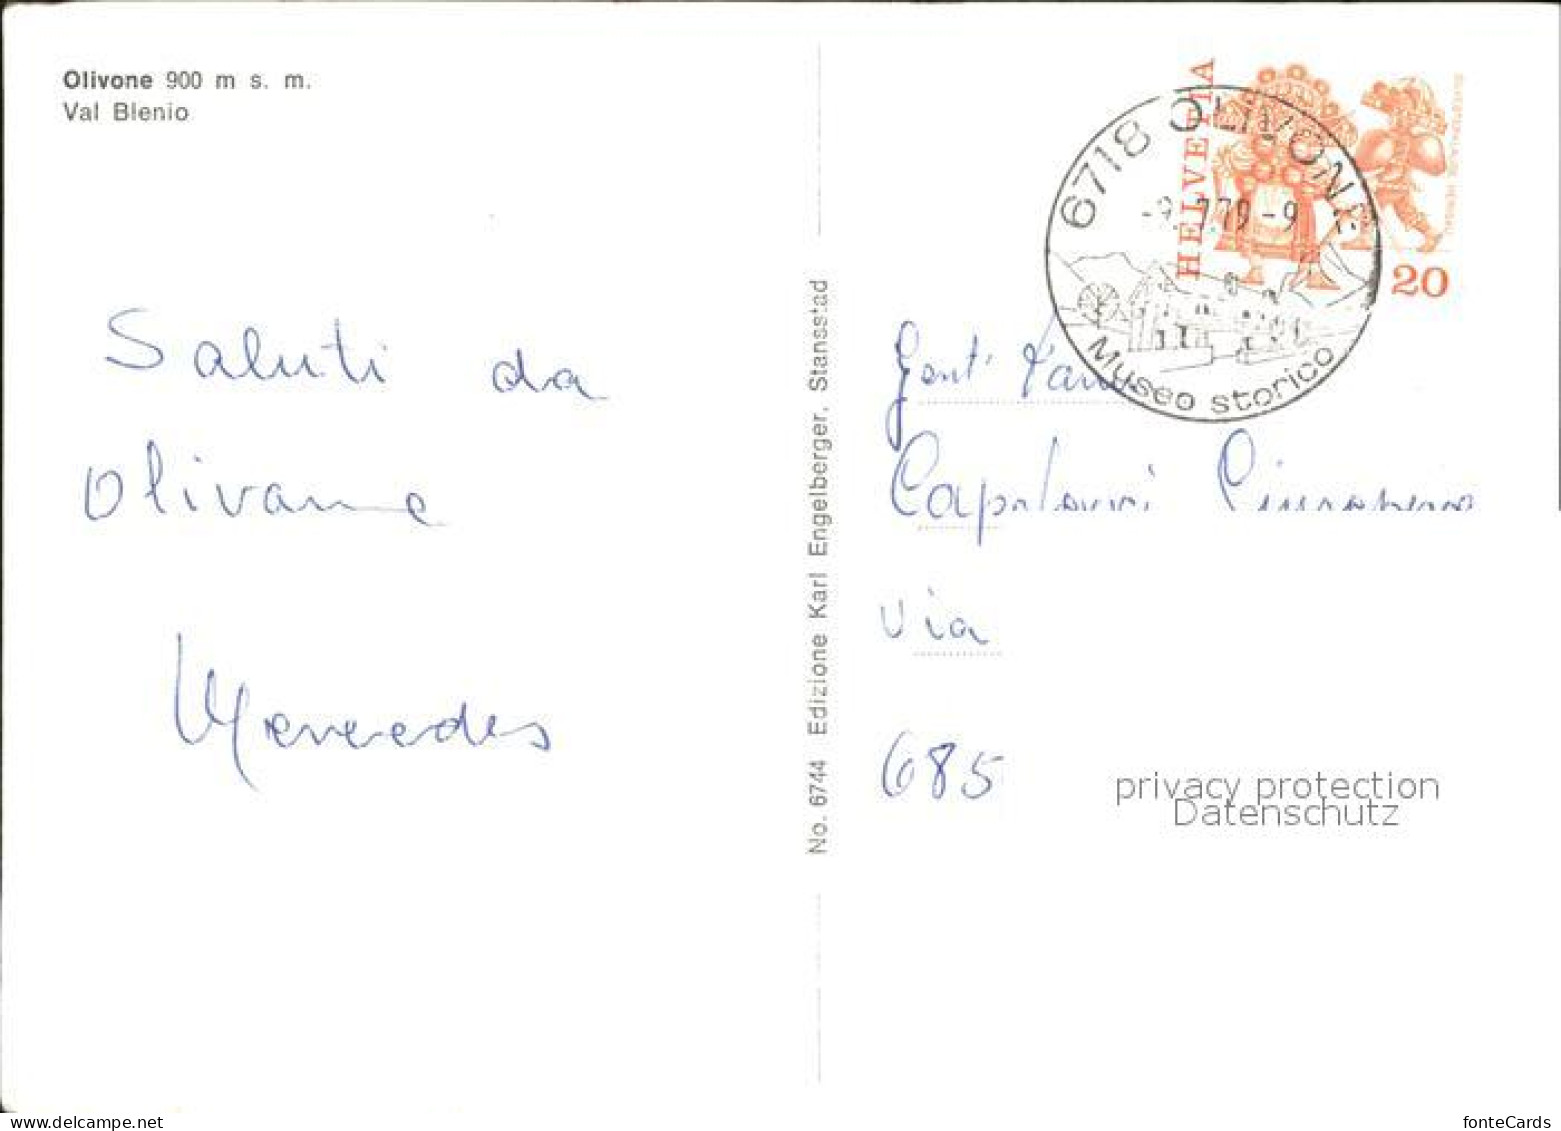 Olivone 900 m s. m.
Val Blenio
Saluti da
Olivone
Mercedes
No. 6744 Edizione Karl Engelberger, Stansstad
HELVETIA
20
6718 OLIVONE
-9. 7.79-9
Museo storico
Gent.
Via
685
privacy protection
Datenschutz
www.delcampe.net
fonteCards